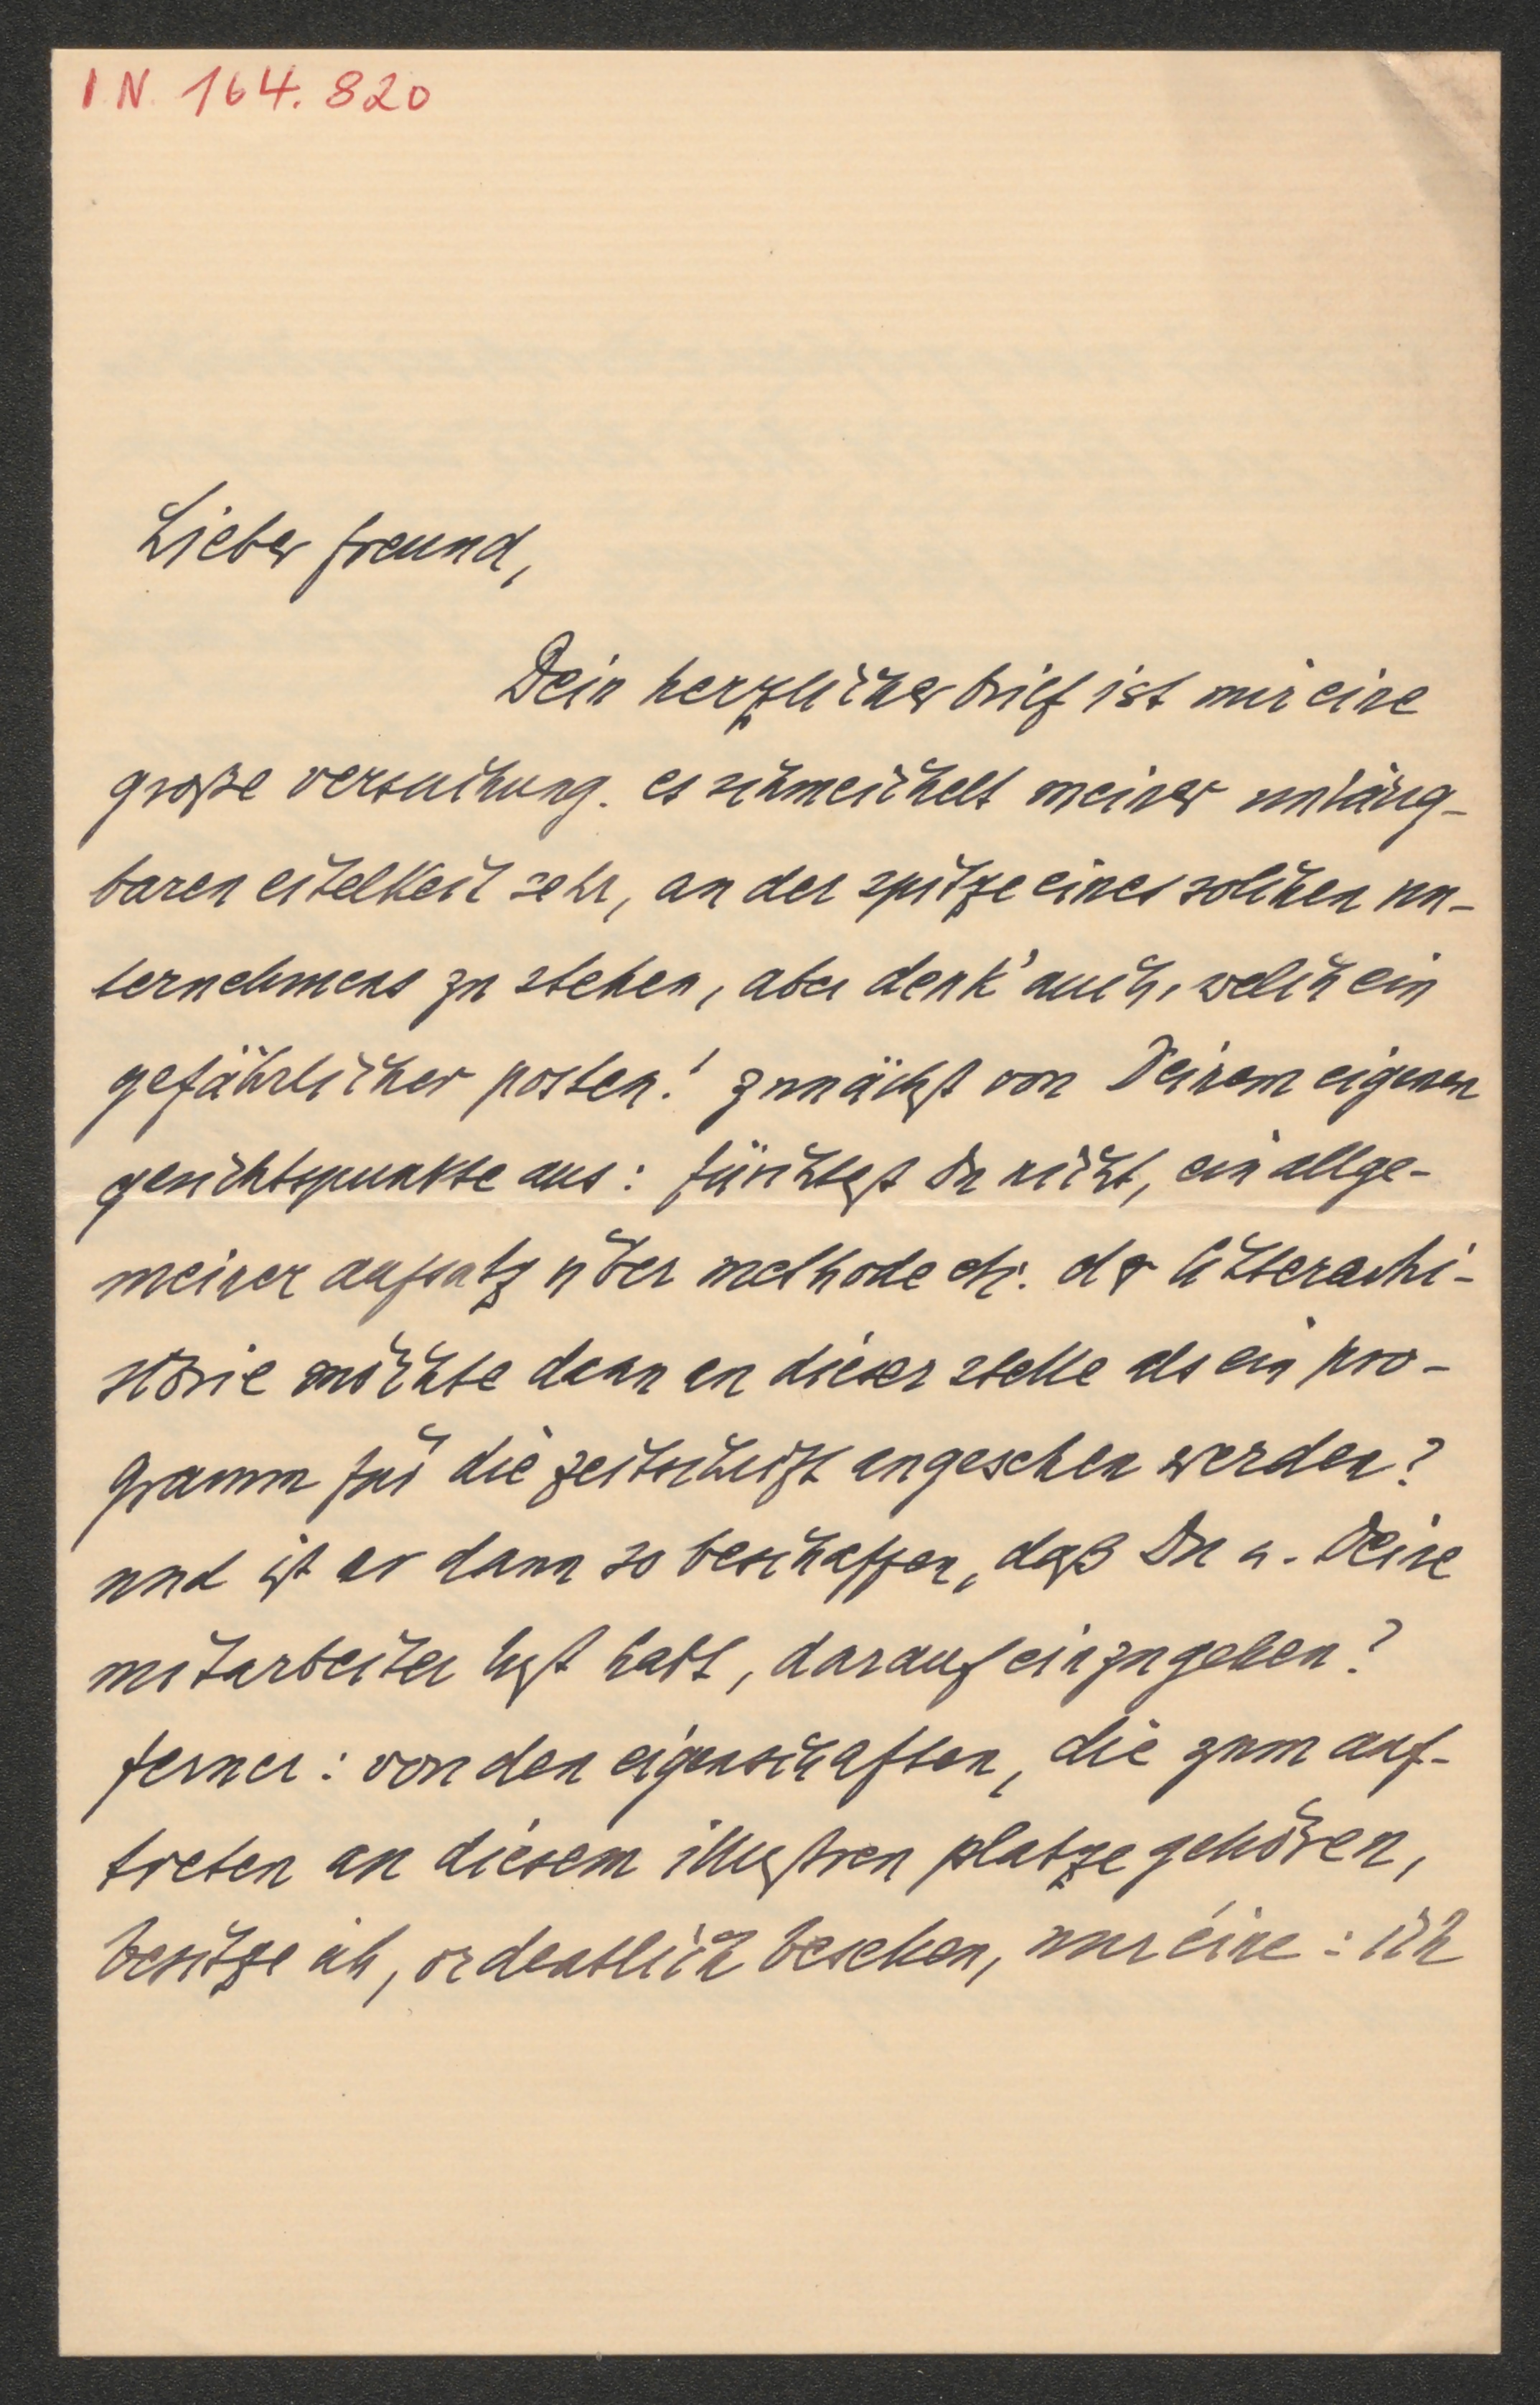 I N. 164.820
Lieber freund,
Dein herzlicher brief ist mir eine
große versuchung. es schmeichelt meiner unläug-
baren eitelkeit sehr, an der spitze eines solchen un-
ternehmens zu stehen, aber denk' auch, welch ein
gefährlicher posten! zunächst von Deinem eigenen
gesichtspunkte aus: fürchtest Du nicht, ein allge-
meiner aufsatz über methode etc. der litterarhi-
storie möchte dann an dieser stelle als ein pro-
gramm für die zeitschrift angesehen werden?
und ist er dann so beschaffen, daß Du u. Deine
mitarbeiter lust habt, darauf einzugehen?
ferner: von den eigenschaften, die zum auf-
treten an diesem illustren platze gehören,
besitze ich, ordentlich besehen, nur éine: ich